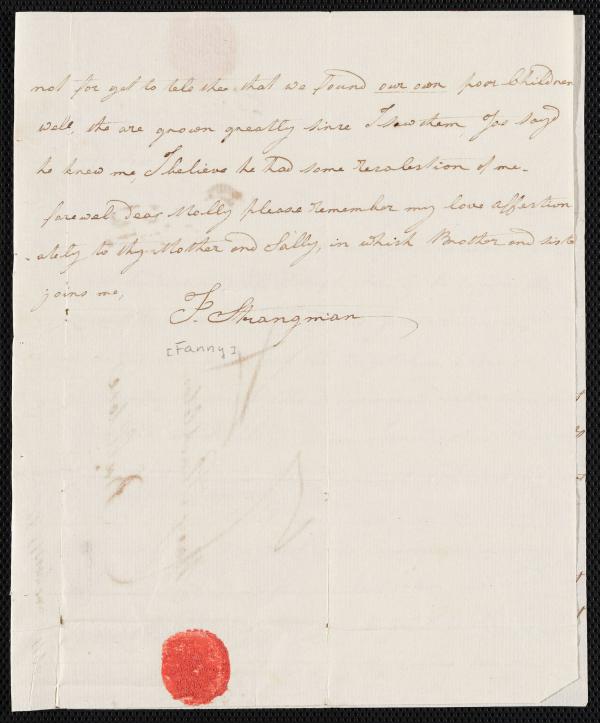 not for get to tele thee that we found our own poor Children
well, the are grown greatly since I saw them, Jos says
he knew me, I believe he had some recolection of me -
farewel Dear Molly please remember my love affection
-ately to thy Mother and Sally, in which Brother and sister
joins me,
F. Strangman
[Fanny]